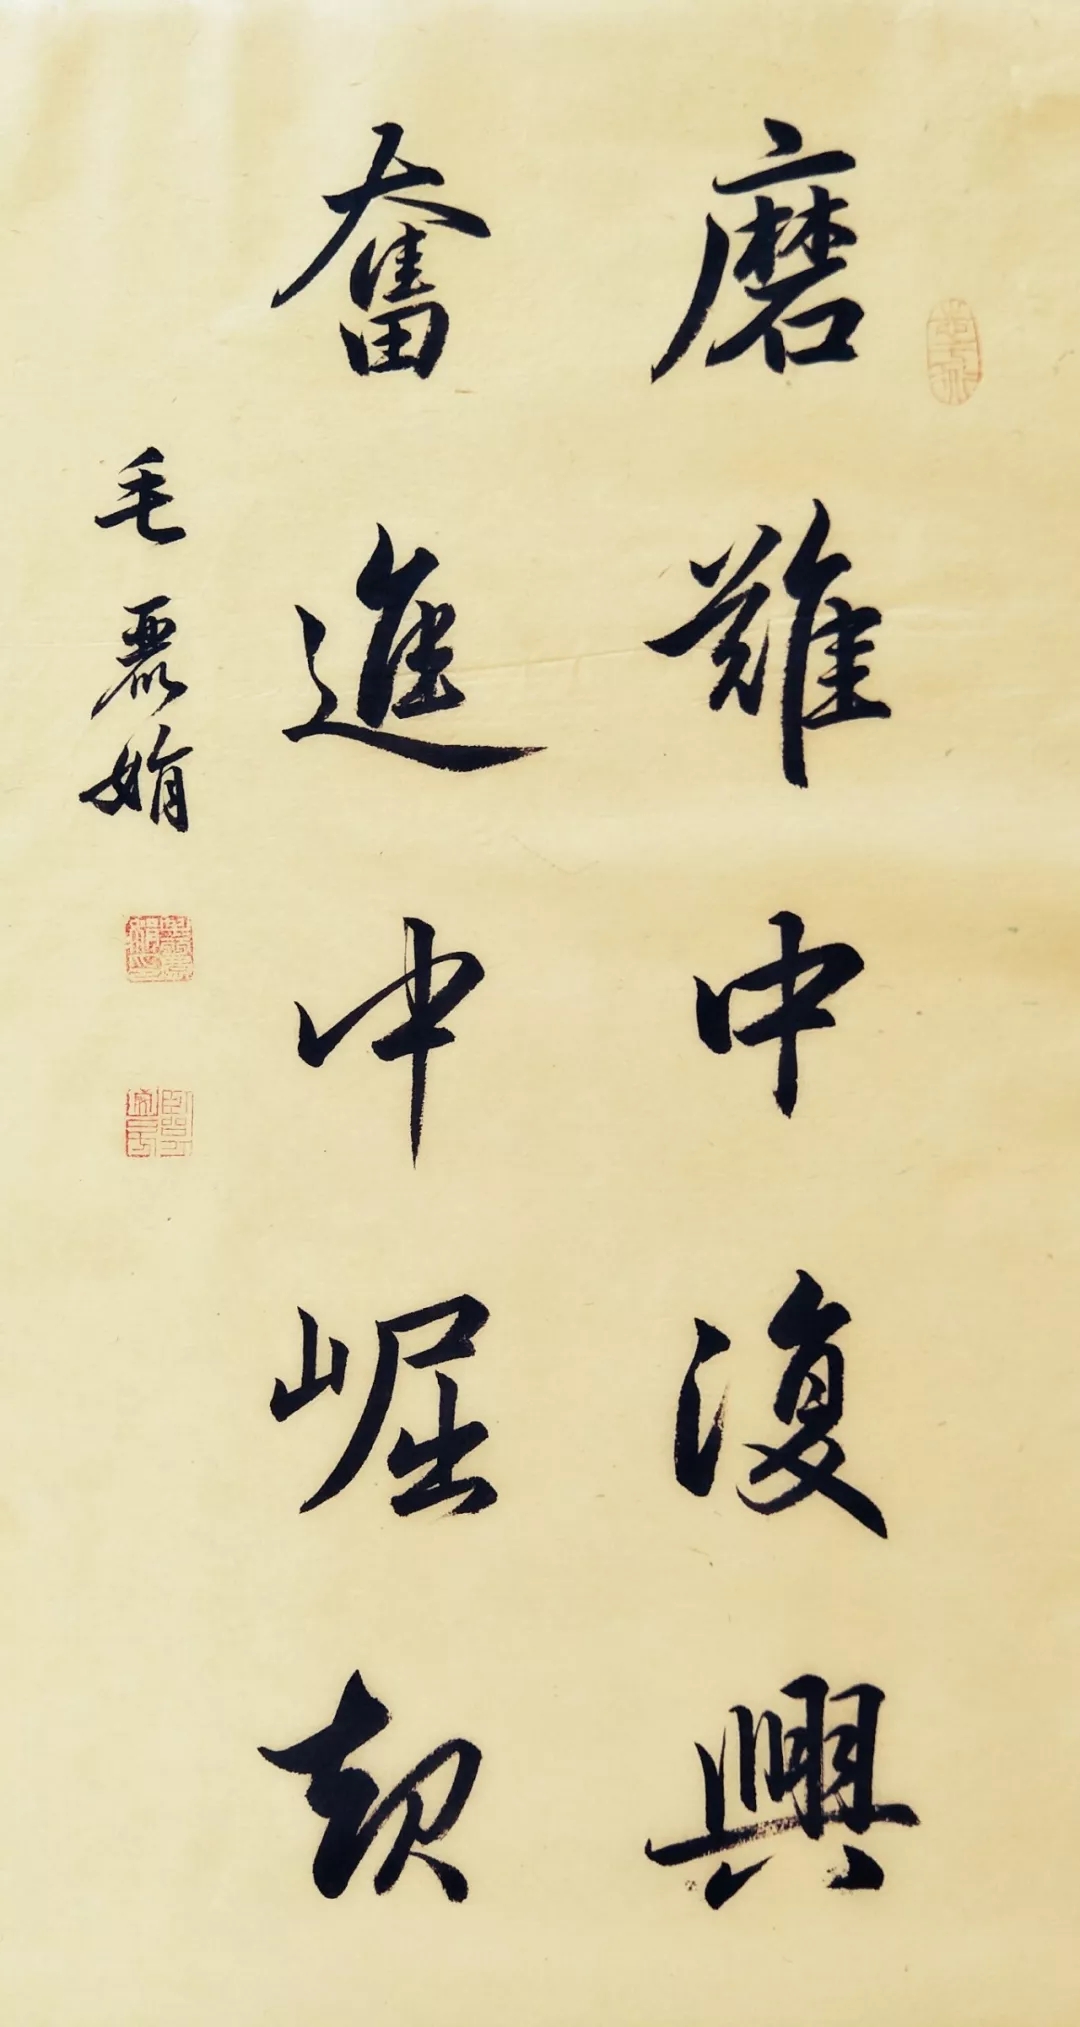 磨難中復興
奮進中崛起
毛麗娟